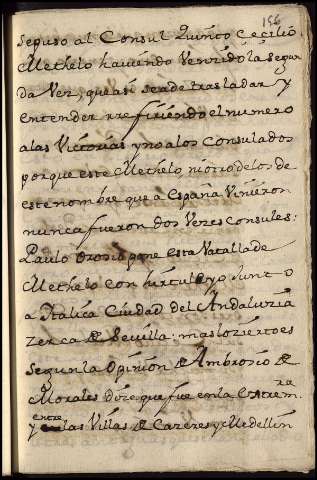 156
seguso al Consul Quinto Cecilio
Methelo haviendo Vencido la segun
da Vez, que asi se a de trasladar y
entender rrefiriendo el numero
a las Victorias y no a los Consulados
porque este Methelo ni otro de los de
este nombre que a España Vinieron
nunca fueron dos Vezes consules:
Paulo Orosio pone esta Vatalla de
Methelo con hirtuleyo Junto
a Italica Ciudad del Andaluzia
Zerca de Sevilla: mas lo zierto es
segun la Opinion de Ambrosio de
Morales dize que fue en la Estrem.ra
y entre las Villas de Cazeres y Medellin